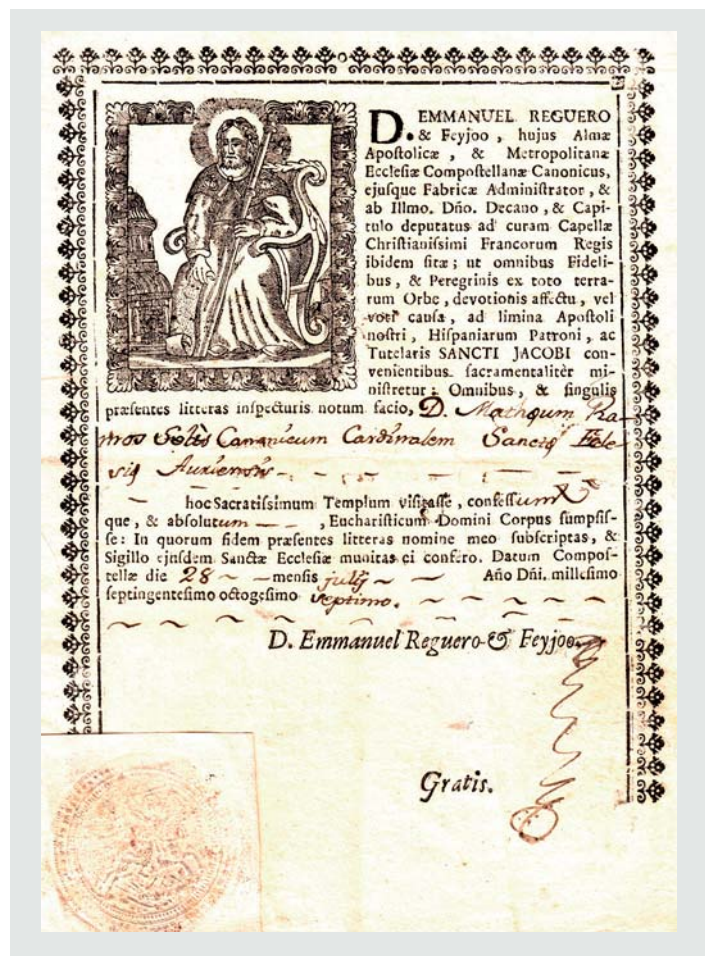 D. EMMANUEL REGUERO
& Feyjoo, hujus Almæ
Apoſtolicæ, & Metropolitanæ
Eccleſiæ Compoſtellanæ Canonicus,
ejuſque Fabricæ Adminiſtrator, &
ab Illmo. Dño. Decano, & Capi-
tulo deputatus ad curam Capellæ
Chriſtianiſſimi Francorum Regis
ibidem ſitæ; ut omnibus Fideli-
bus, & Peregrinis ex toto terra-
rum Orbe, devotionis affectu, vel
voti cauſa, ad limina Apoſtoli
noſtri, Hiſpaniarum Patroni, ac
Tutelaris SANCTI JACOBI con-
venientibus ſacramentalitèr mi-
niſtretur: Omnibus, & ſingulis
præſentes litteras inſpecturis notum facio, D. Matheum Ra-
mos Solis Canonicum Cardinalem Sanctę Ecle
się Auriensis
hoc Sacratiſſimum Templum viſitaſſe, confeſſum
que, & abſolutum, Euchariſticum Domini Corpus ſumpſiſ-
ſe: In quorum fidem præſentes litteras nomine meo ſubſcriptas, &
Sigillo ejuſdem Sanctæ Eccleſiæ munitas ei confero. Datum Compoſ-
tellæ die 28 menſis julÿ Año Dñi. milleſimo
ſeptingenteſimo octogeſimo septimo.
D. Emmanuel Reguero & Feyjoo.
Gratis.